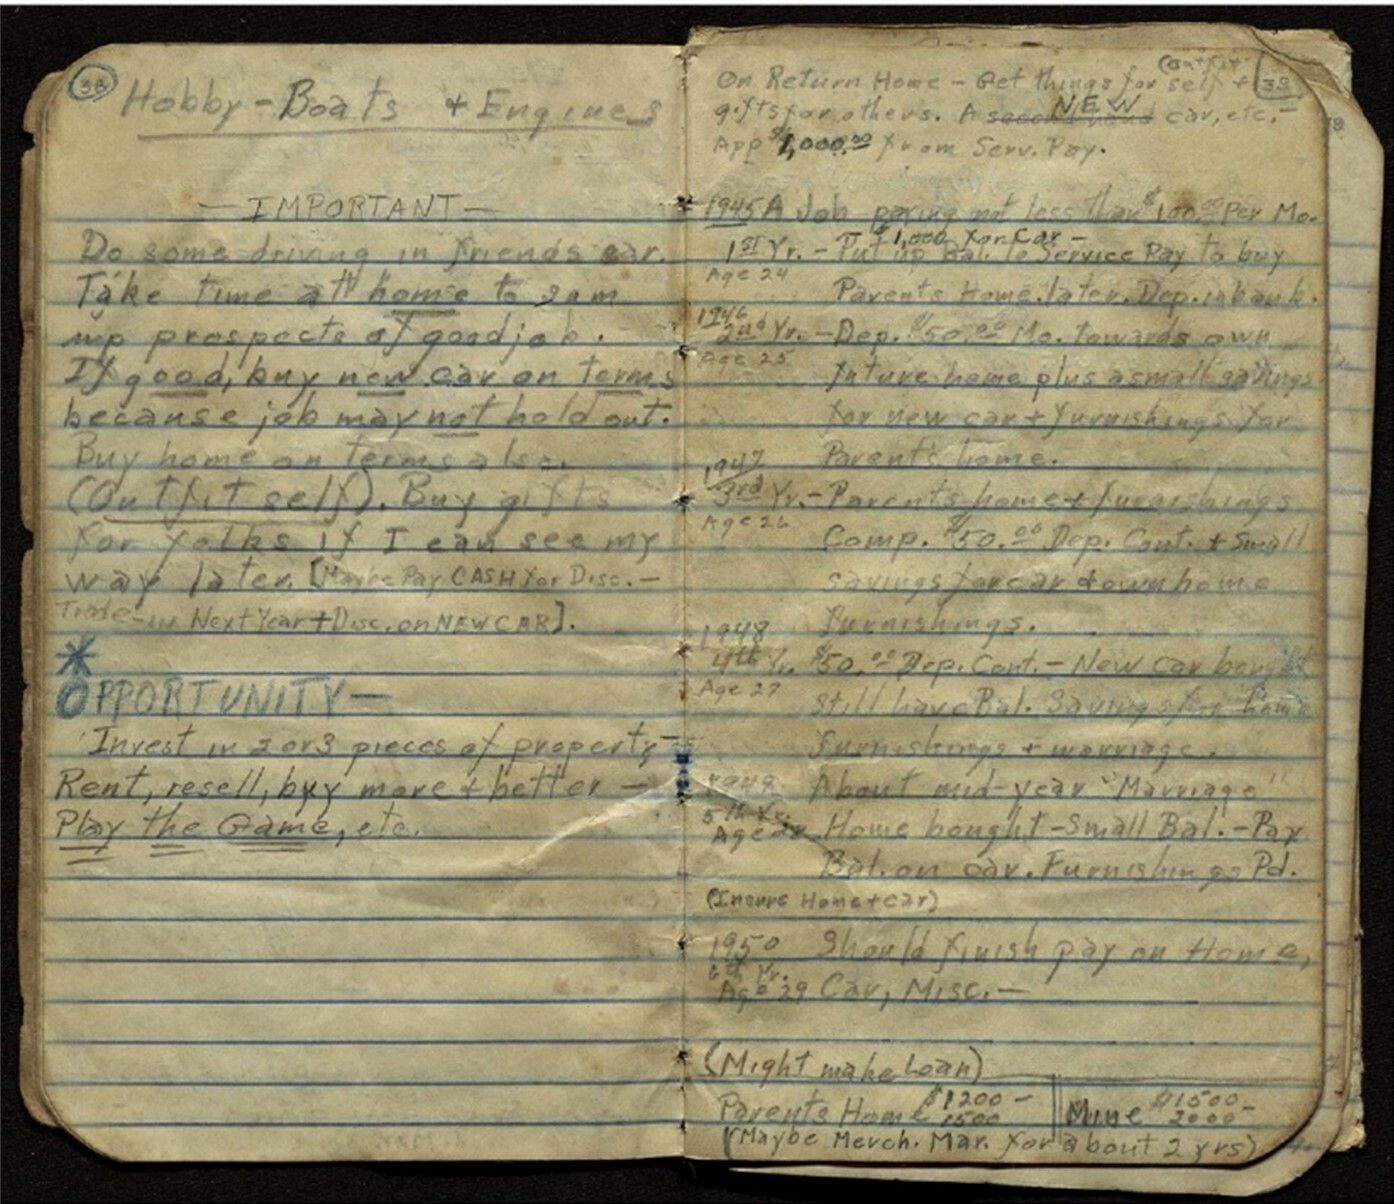 38
Hobby - Boats + Engines
— IMPORTANT —
Do some driving in friends car.
Take time at home to
up prospects of good job.
If good, buy new car on terms
because job may not hold out.
Buy home on terms also.
(Outfit self). Buy gifts
for folks if I can see my
way later. [Maybe Pay CASH for Disc. —
Trade-in Next Year + Disc. on NEW CAR].
*
OPPORTUNITY —
Invest in 2 or 3 pieces of property —
Rent, resell, buy more + better —
Play the Game, etc.
39
On Return Home - Get things for self +
gifts for others. A NEW car, etc. —
App $1,000.00 from Serv. Pay.
1945 A Job paying not less than $100.00 Per Mo.
$1,000 for Car —
1st Yr. - Put up Bal. to Service Pay to buy
Age 24
Parents Home later. Dep. in bank.
1946
2nd Yr. - Dep. $50.00 Mo. towards own
Age 25
future home plus a small savings
for new car + furnishings for
Parents home.
1947
3rd Yr. - Parents home + furnishings
Age 26
Comp. $50.00 Dep. Cont. + small
savings for car + own home
furnishings.
1948
4th Yr. $50.00 Dep. Cont. - New car bought
Age 27
still have Bal. Savings for home
furnishings + marriage.
1949 About mid-year "Marriage"
5th Yr.
Age 28 Home bought - Small Bal. - Pay
Bal. on car. Furnishings Pd.
(Insure Home + car)
1950 Should finish pay on Home,
6th Yr.
Age 29 Car, Misc. —
(Might make Loan)
Parents Home $1200 - Mine $1500-
1500 2000-
(Maybe Merch. Mar. for about 2 yrs)